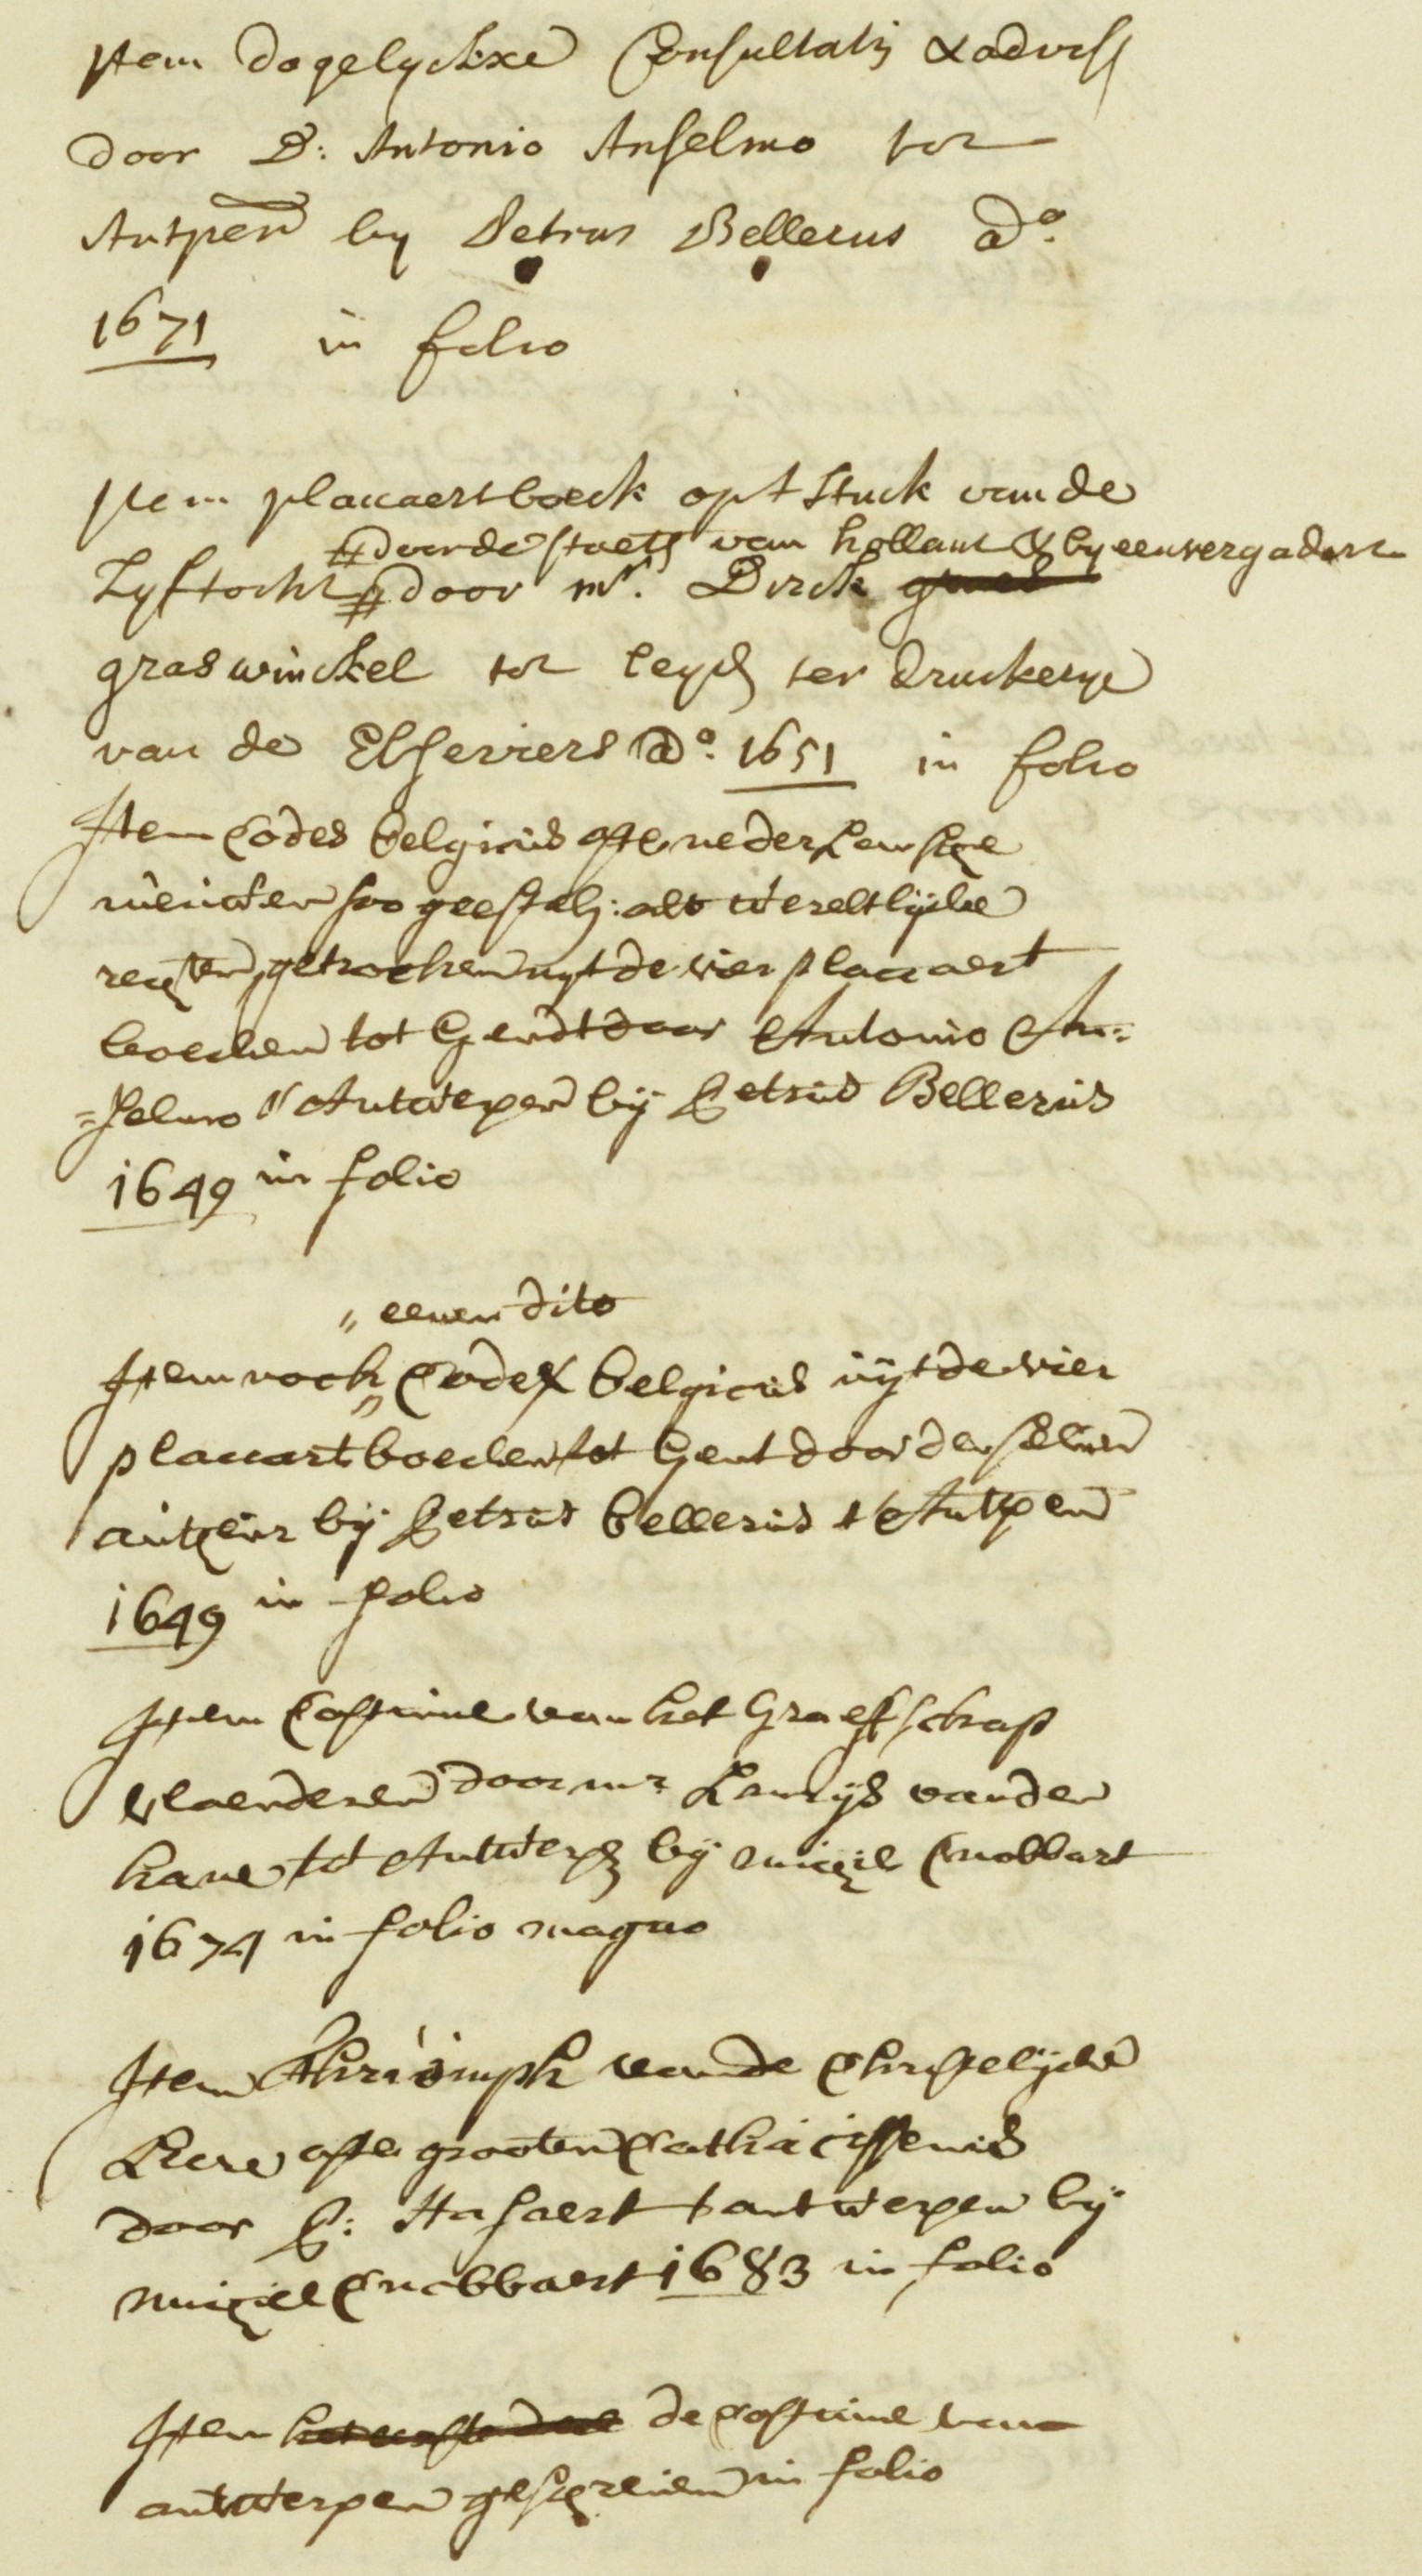 Item dagelyckxe Consultatien & advisen
door D: Antonio Anselmo tot
Antpen by Petrus Bellerus ao.
1671 in folio
Item placcaertboeck opt stuck vande
# door de staeten van hollant & by een vergadert
Lyftocht # door mr. Dirck
graswinckel tot leyden ter druckerye
van de Elseviers Ao. 1651 in folio
Item Codes belgicus ofte nederlansche
nieuwe soo geestelij: als wereltlijcke
rechten, getrocken uyt de vier placcaert
boecken tot Gendt door Antonio An:
=selmo t' Antwerpen bij Petrus Bellerus
1649 in folio
" eenen dito
Item noch " Codex belgicus uijt de vier
placcartboecken tot Gent door den selven
autheur bij Petrus bellerus t' Antpen
1649 in folio
Item Costuime van het Graefschap
vlaenderen door mr Laurijs vanden
hane tot Antwerpen bij michiel Cnobbart
1674 in folio magno
Item Thriumph vande Christelijcke
Leere ofte grooten Cathicissmus
door P: Hasaert t antwerpen bij
michiel Cnobbaert 1683 in folio
Item het eerste deel de Costuime van
antwerpen geschreven in folio